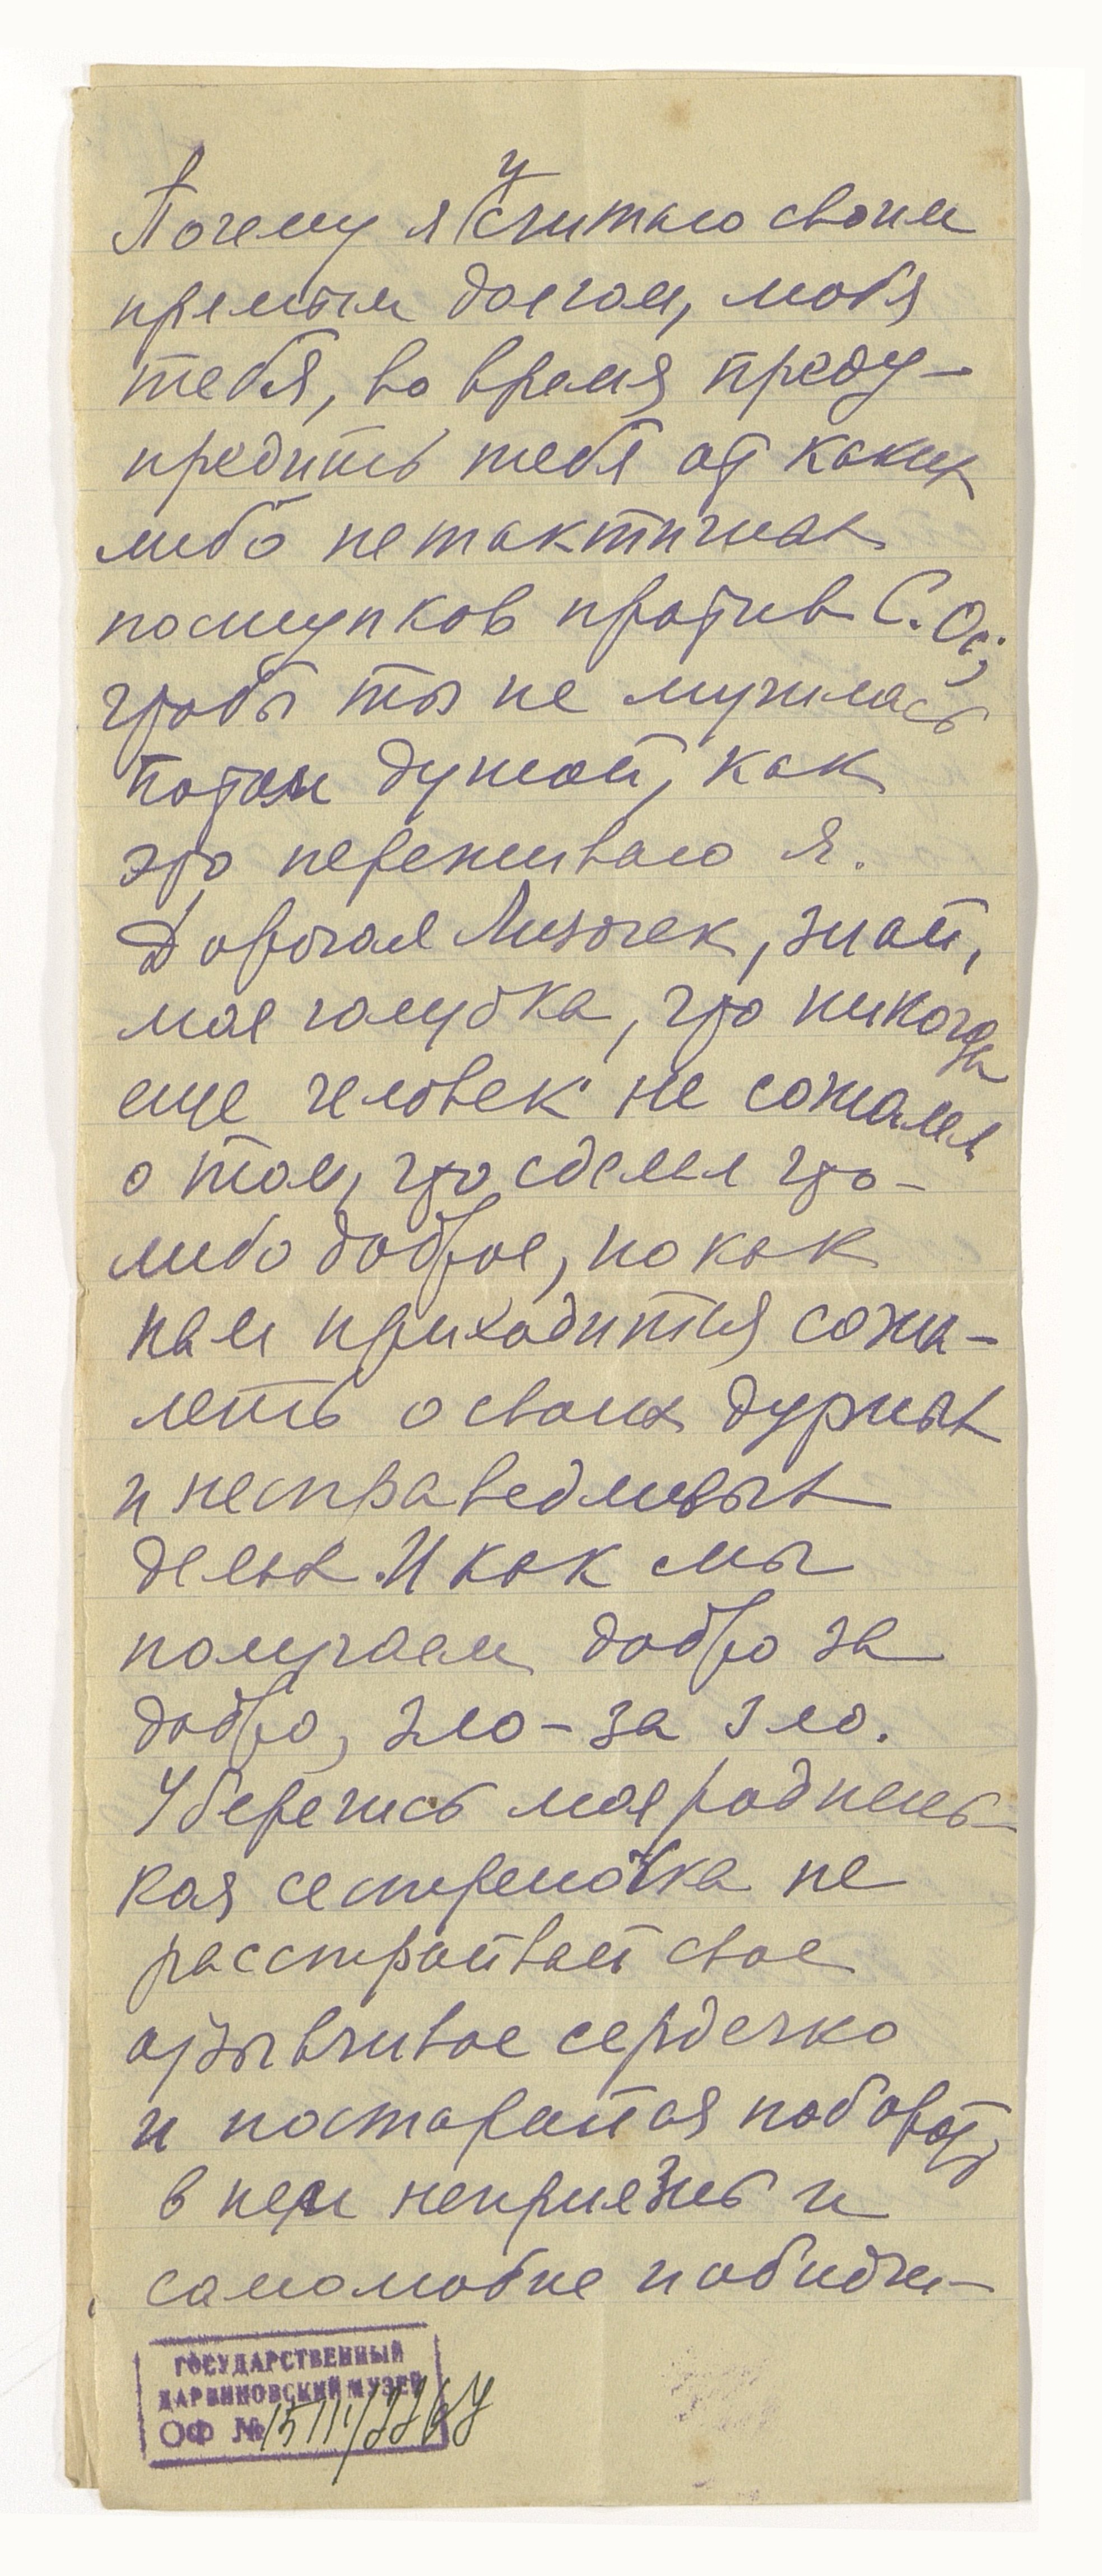 Почему я и считаю своим
прямым долгом, любя
тебя, во время преду-
предить тебя от каких
либо нетактичных
поступков против С. О.,
чтобы ты не мучилась
потом душой, как
это переживаю я.
Дорогая Лизочек, знай,
моя голубка, что никогда
еще человек не сожалел
о том, что сделал что-
либо доброе, но как
нам приходится сожа-
леть о своих дурных
и несправедливых
делах. И как мы
получаем добро за
добро, зло – за зло.
Уберегись моя роднень-
кая сестреночка не
расстраивай свое
отзывчивое сердечко
и постарайся побороть
в нем неприязнь и
самолюбие и обидчи-
ГОСУДАРСТВЕННЫЙ
ДАРВИНОВСКИЙ МУЗЕЙ
ОФ №